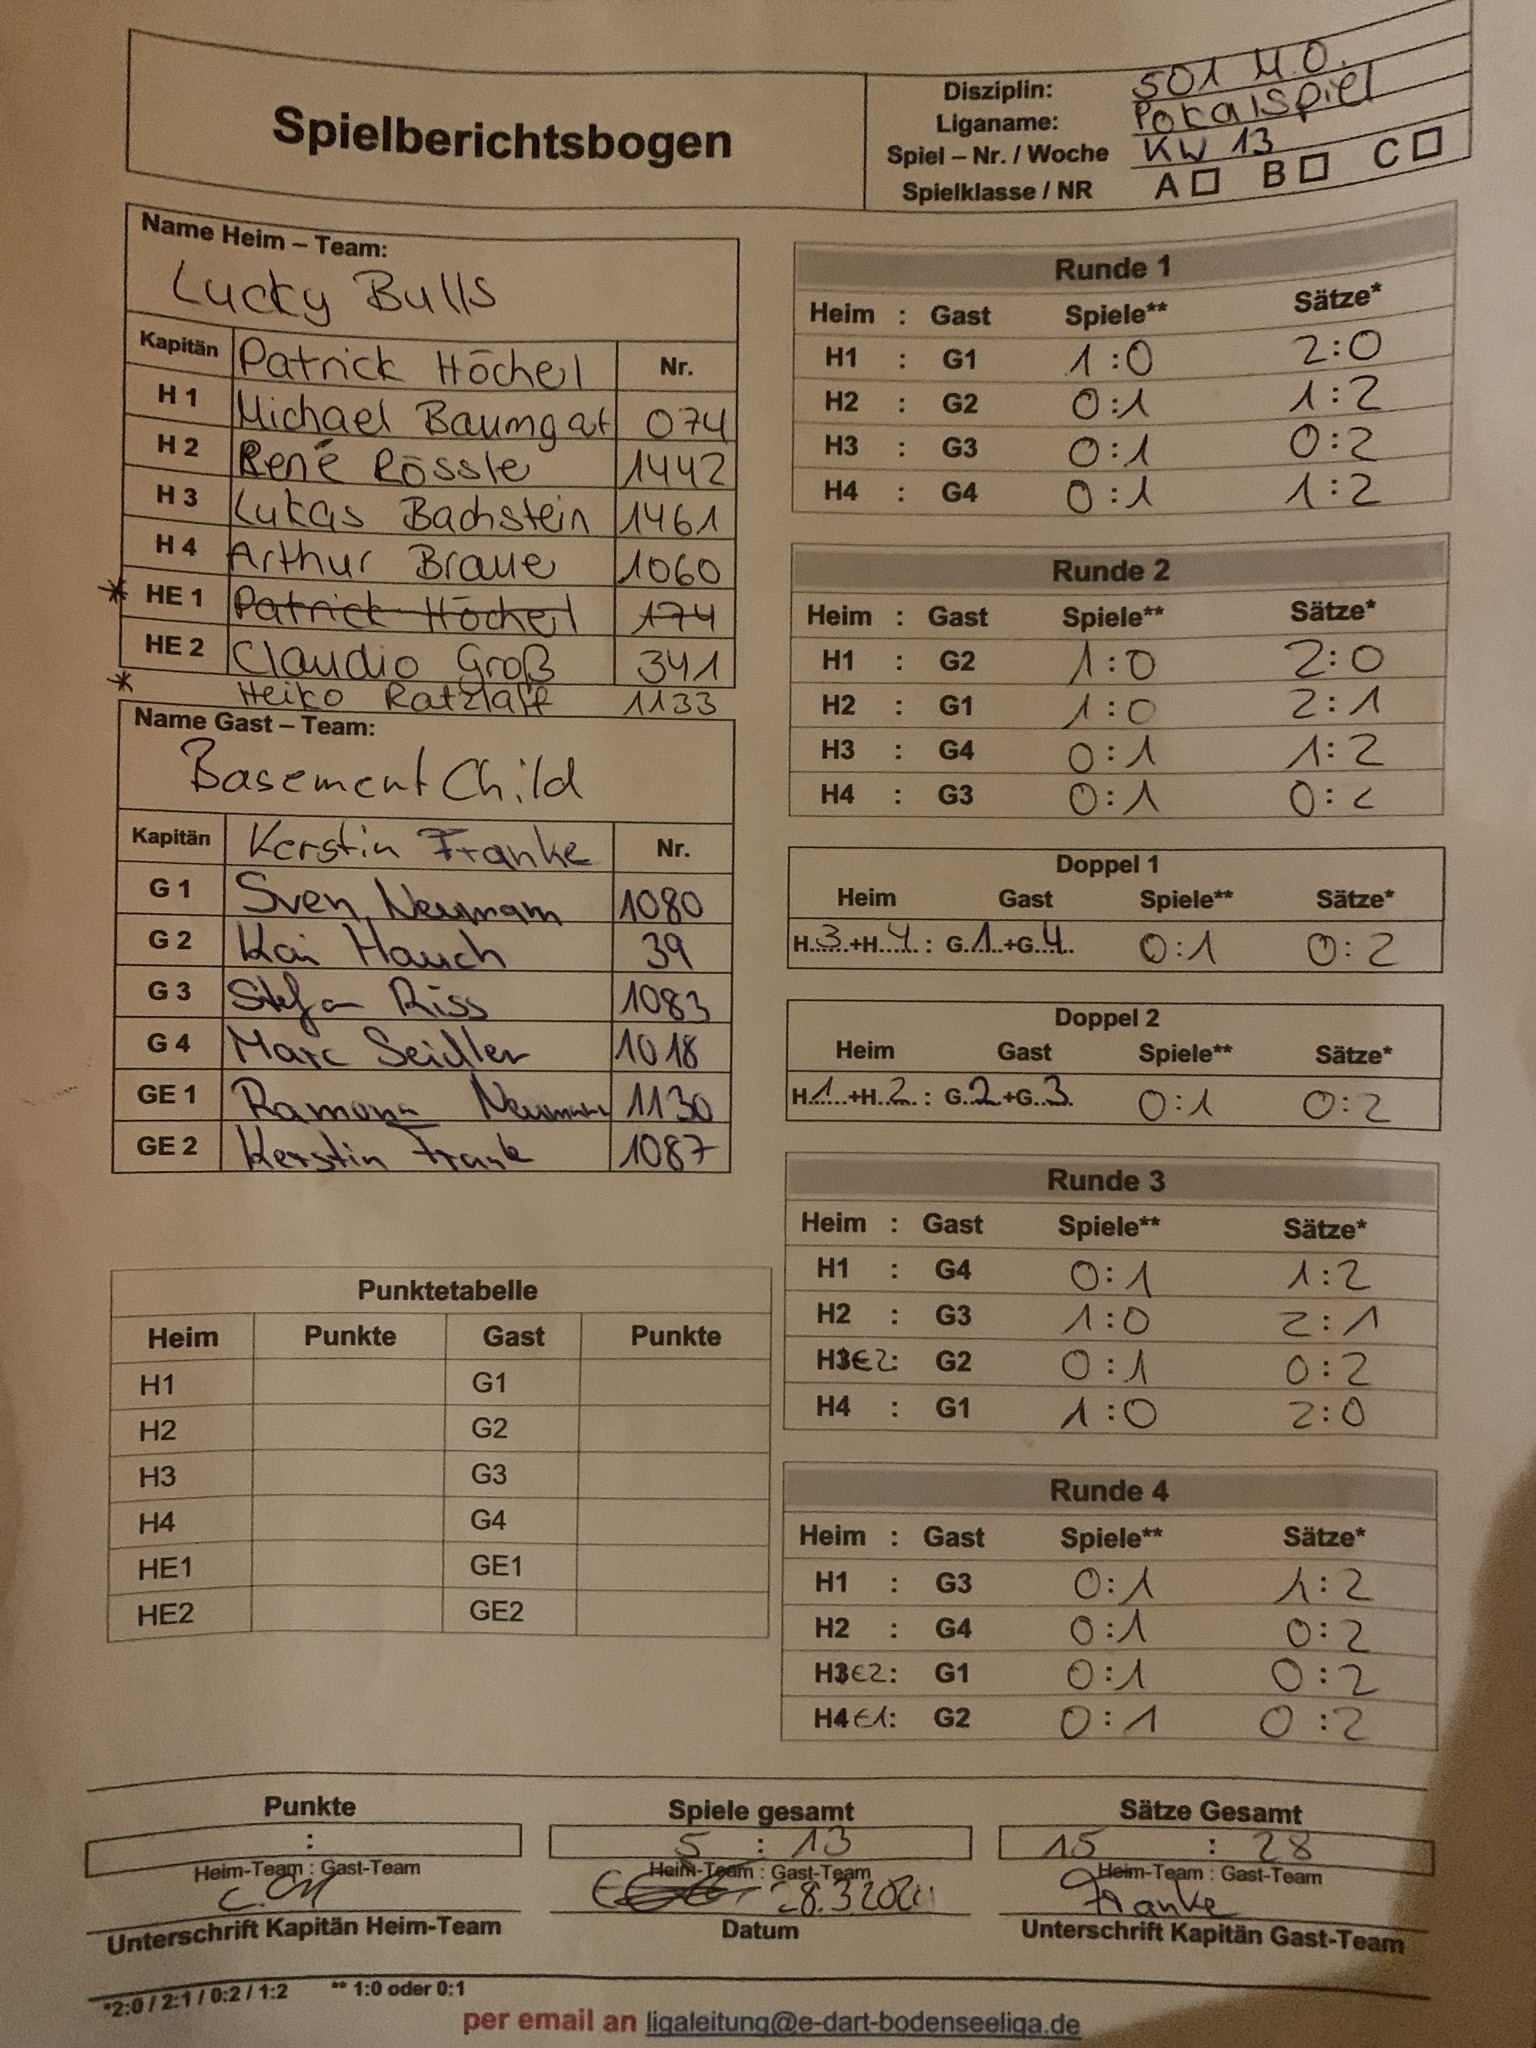 Spielberichtsbogen
Disziplin: 501 M.O.
Liganame: Pokalspiel
Spiel – Nr. / Woche KW 13
Spielklasse / NR A □ B □ C □
Name Heim – Team:
Lucky Bulls
Kapitän Patrick Höchel Nr.
H 1 Michael Baumgat 074
H 2 René Rössle 1442
H 3 Lukas Bachstein 1461
H 4 Arthur Braue 1060
* HE 1 Patrick Höchel 174
HE 2 Claudio Groß 341
* Heiko Ratzlaff 1133
Name Gast – Team:
Basement Child
Kapitän Kerstin Franke Nr.
G 1 Sven Neumann 1080
G 2 Kai Hauch 39
G 3 Stefan Riss 1083
G 4 Marc Seidler 1018
GE 1 Ramona Neumann 1130
GE 2 Kerstin Frank 1087
Punktetabelle
Heim Punkte Gast Punkte
H1 G1
H2 G2
H3 G3
H4 G4
HE1 GE1
HE2 GE2
Runde 1
Heim : Gast Spiele** Sätze*
H1 : G1 1:0 2:0
H2 : G2 0:1 1:2
H3 : G3 0:1 0:2
H4 : G4 0:1 1:2
Runde 2
Heim : Gast Spiele** Sätze*
H1 : G2 1:0 2:0
H2 : G1 1:0 2:1
H3 : G4 0:1 1:2
H4 : G3 0:1 0:2
Doppel 1
Heim Gast Spiele** Sätze*
H..3..+H..4.. : G..1..+G..4.. 0:1 0:2
Doppel 2
Heim Gast Spiele** Sätze*
H..1..+H..2.. : G..2..+G..3.. 0:1 0:2
Runde 3
Heim : Gast Spiele** Sätze*
H1 : G4 0:1 1:2
H2 : G3 1:0 2:1
H3E2: G2 0:1 0:2
H4 : G1 1:0 2:0
Runde 4
Heim : Gast Spiele** Sätze*
H1 : G3 0:1 1:2
H2 : G4 0:1 0:2
H3E2: G1 0:1 0:2
H4E1: G2 0:1 0:2
Punkte Spiele gesamt Sätze Gesamt
: 5 : 13 15 : 28
Heim-Team : Gast-Team Heim-Team : Gast-Team Heim-Team : Gast-Team
28.3.202 Franke
Unterschrift Kapitän Heim-Team Datum Unterschrift Kapitän Gast-Team
*2:0 / 2:1 / 0:2 / 1:2 ** 1:0 oder 0:1
per email an ligaleitung@e-dart-bodenseeliga.de